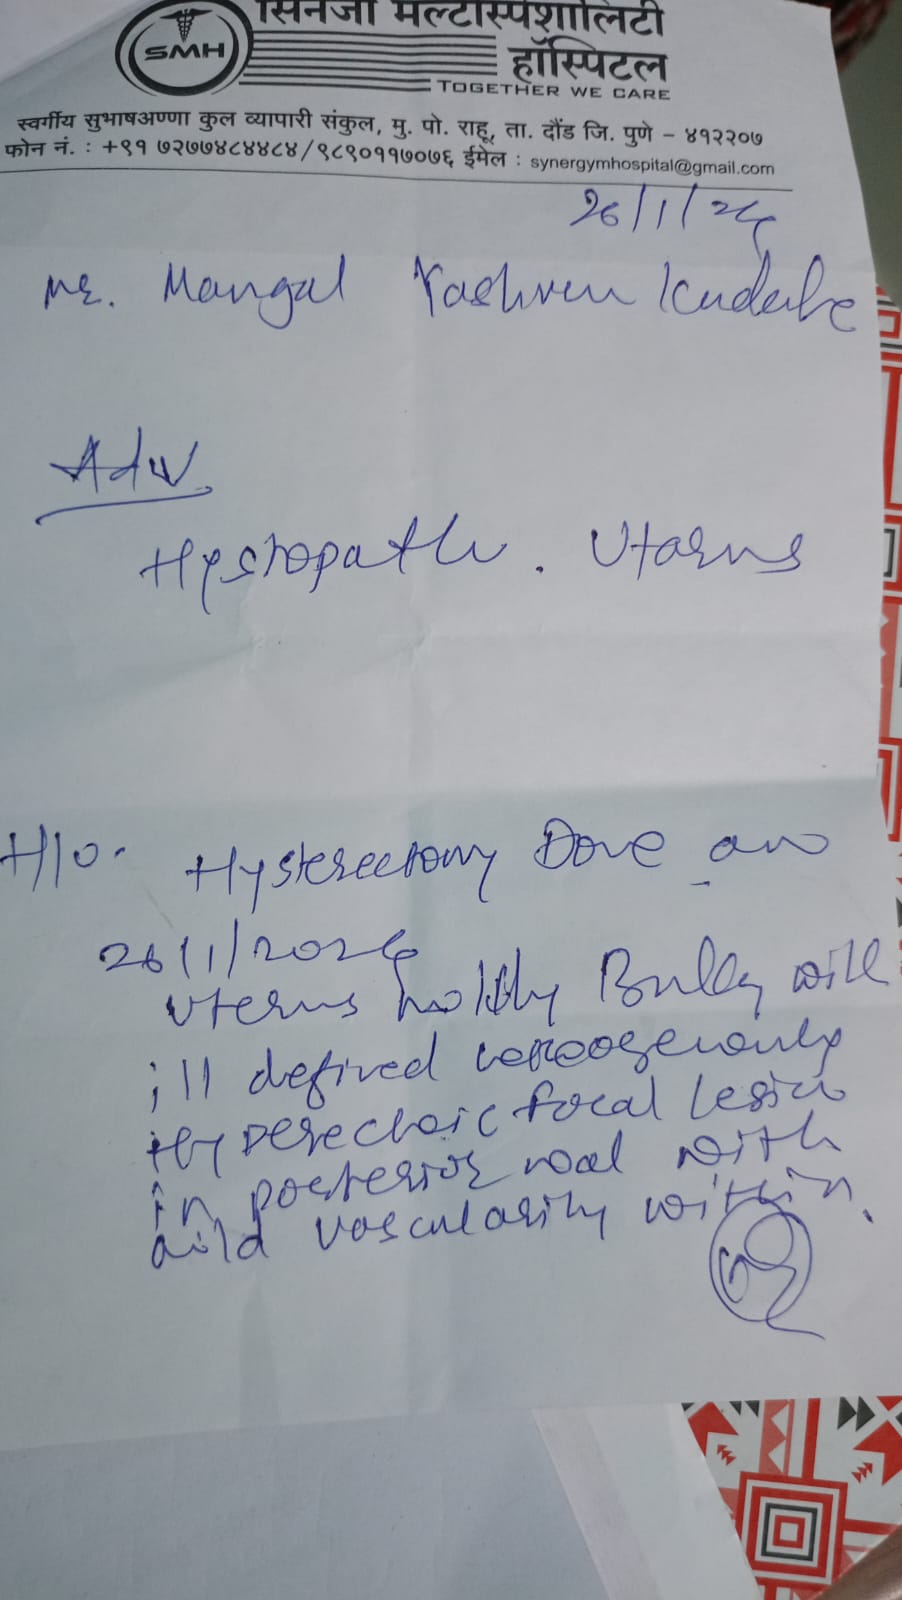 सिनर्जी मल्टीस्पेशालिटी
हॉस्पिटल
SMH
TOGETHER WE CARE
स्वर्गीय सुभाषअण्णा कुल व्यापारी संकुल, मु. पो. राहू, ता. दौंड जि. पुणे - ४१२२०७
फोन नं. : +९१ ७२७७४८४४८४/९८९०११७०७६ ईमेल : synergymhospital@gmail.com
26/1/26
Mangal
Adv
Hystopath. Utarus
H/o. Hysterectomy Done on
26/1/2026
Uterus Bulky with
ill defined
Hyperechoic focal lesion
in posterior wal with
mild vascularity within.